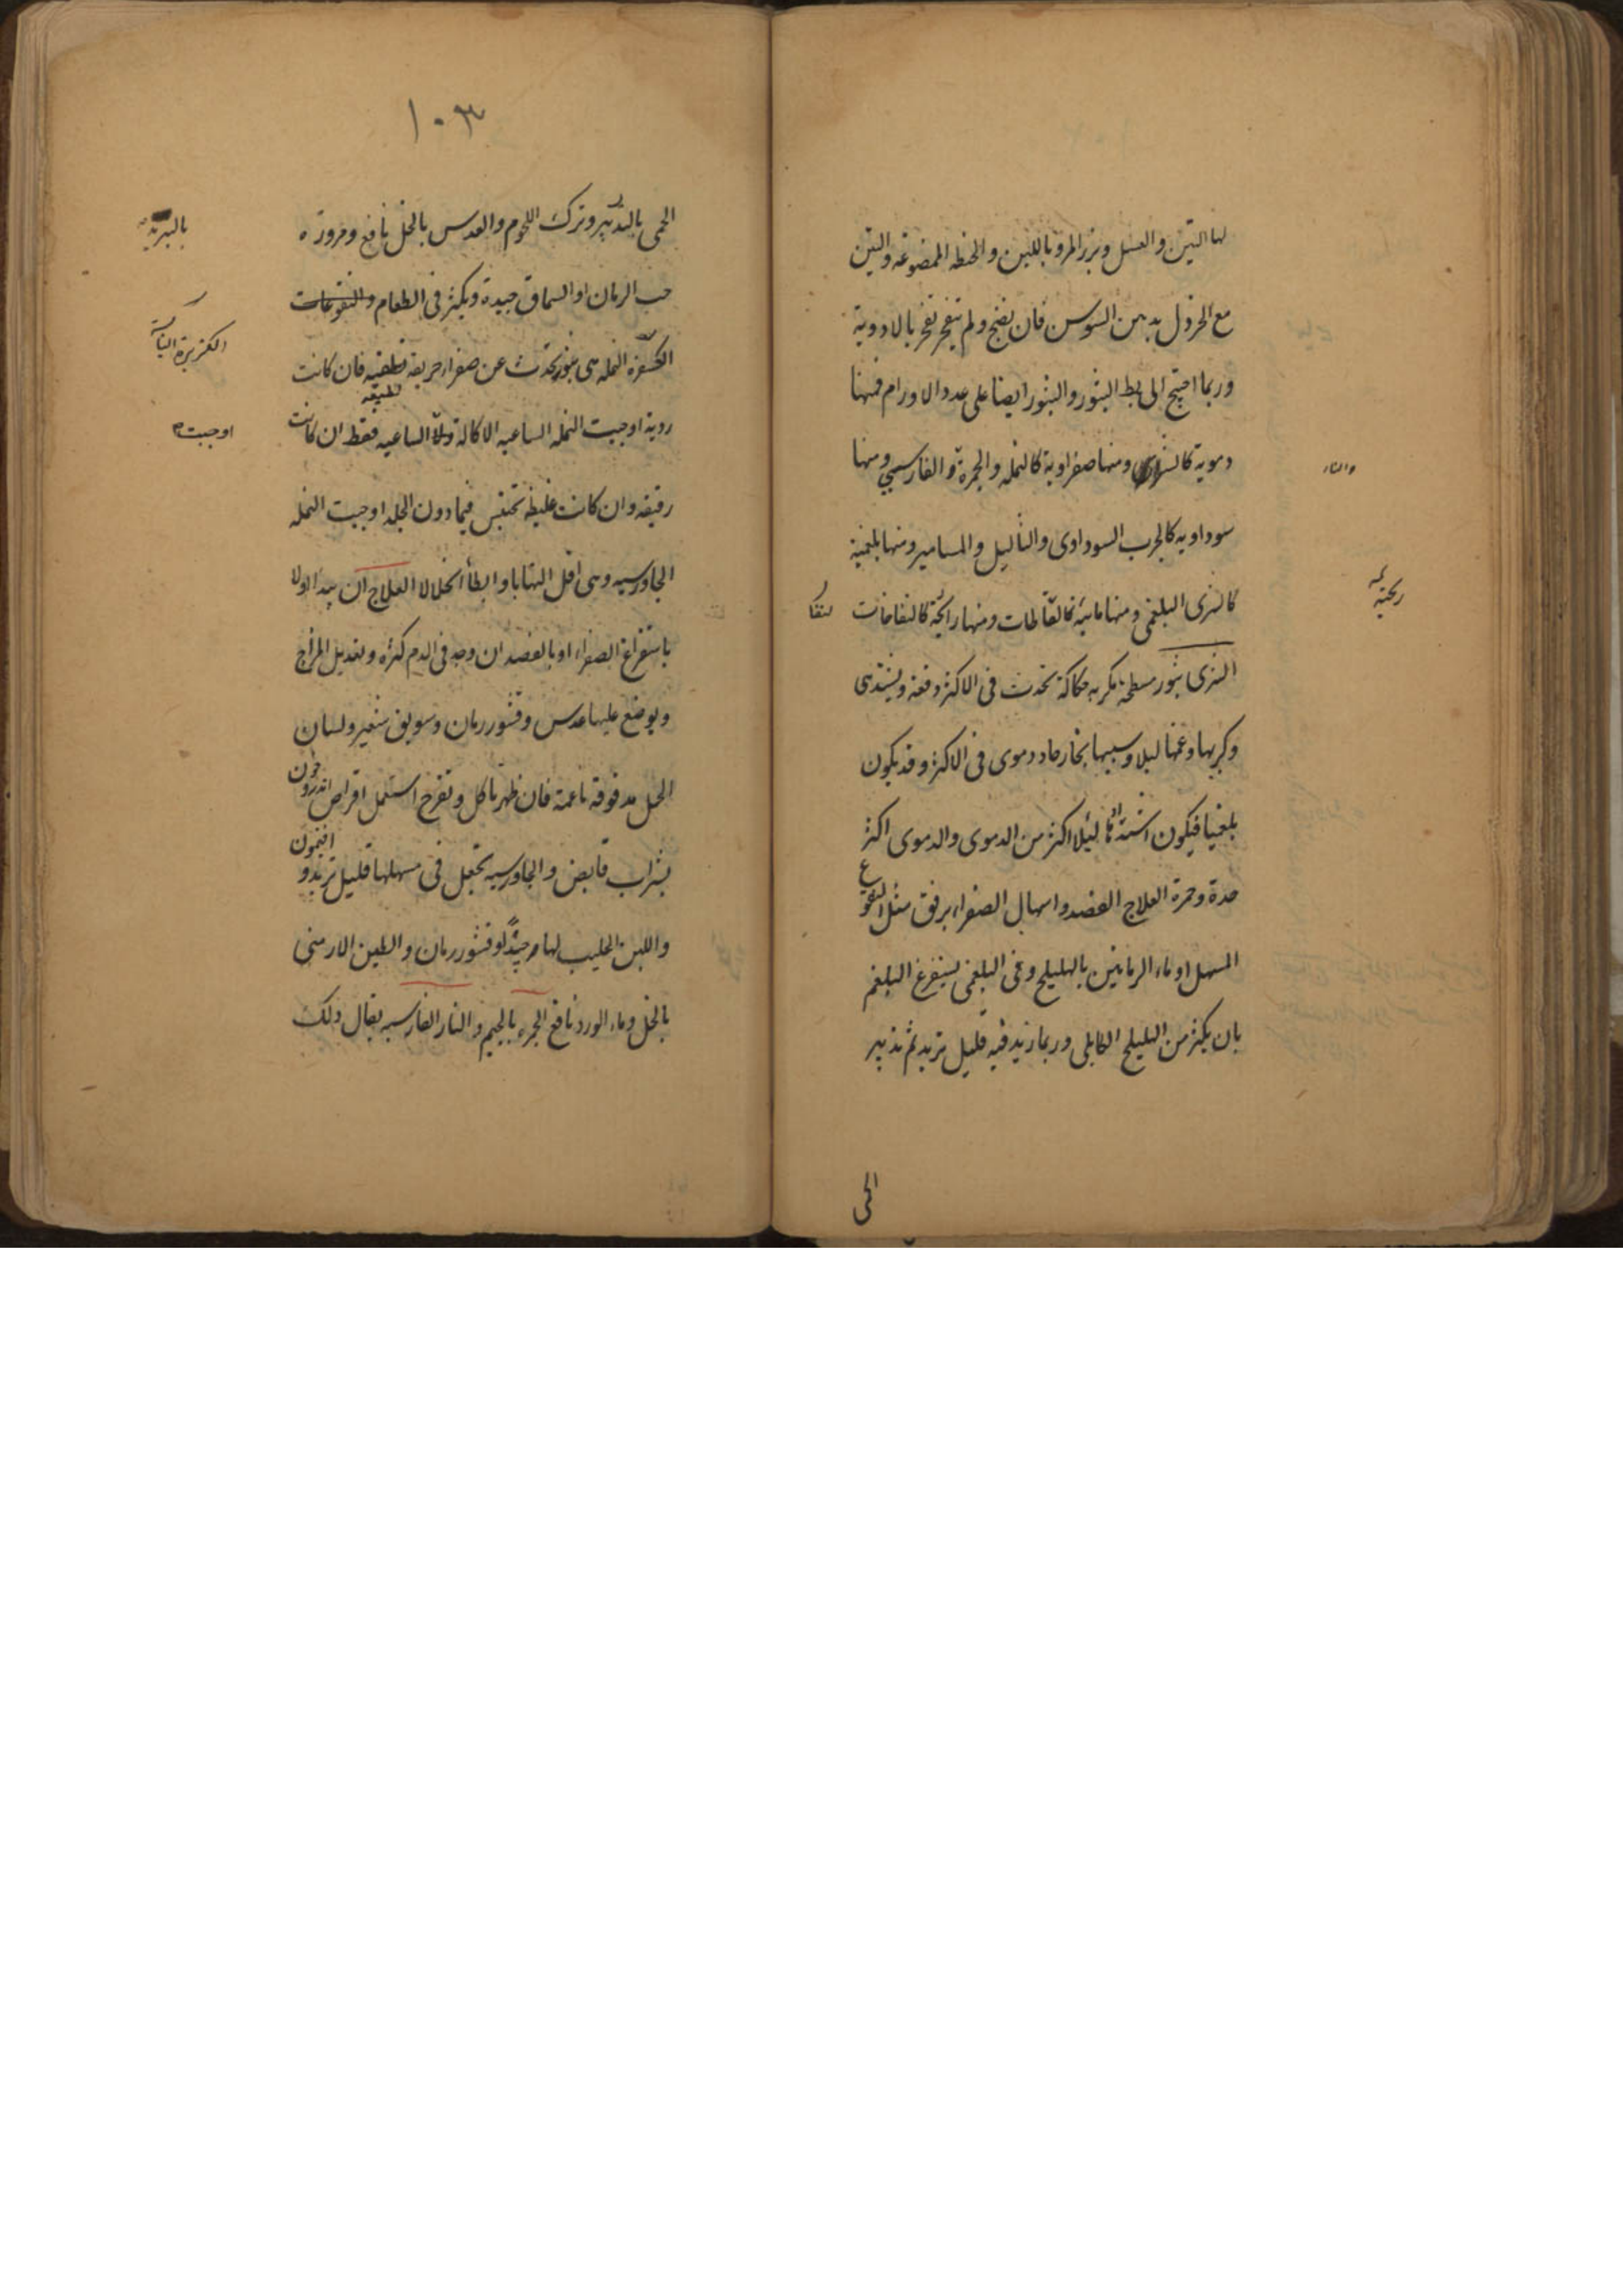 لها التين والعسل وبزر المرو باللبن والحنطه الممضوغه والتين
مع الخردل بدهن السوسن فان نضج ولم ينفجر تفجر بالادوية
وربما احتيج الى بط البثور والبثور ايضا على عدد الاورام فمنها
دموية كالشرى ومنها صفراوية كالنمله والجمرة و الفارسى ومنها
والنار
سوداويه كالجرب السوداوى والثاليل والمسامير ومنها بلغمية
كالشرى البلغمى ومنها مائية كالنفاطات ومنها رائحية كالنفاخات
ريحية
الشرى بثور مسطحة مكربه حكاكة تحدث فى الاكثر دفعة ويشتد
وكربها وغمها ليلا وسببها بخار حاد دموى فى الاكثر وقد يكون
بلغميا فيكون اشتدادها ليلا اكثر من الدموى والدموى اكثر
حدة وحمرة العلاج الفصد واسهال الصفراء برفق مثل النقوع
المسهل او ماء الرمانين بالهليلج وفى البلغمى يستفرغ البلغم
بان يكثر من الهليلج الكابلى وربما زيد فيه قليل تربد ثم تدبير
الحمى
١٠٣
الحمى بالتدبير وترك اللحوم والعدس بالخل نافع ومزورة
بالتبريد
حب الرمان او السماق جيدة ويكثر فى الطعام والنقوعات
الكزبرة اليابسة
الكسفرة النمله هى بثور تحدث عن صفراء حريفة لطيفه فان كانت
لطيفه
ردية اوجبت النمله الساعيه الاكالة والا الساعيه فقط ان كانت
اوجبت
رقيقه وان كانت غليظة تحتبس فيما دون الجلد اوجبت النمله
الجاورسيه وهى اقل التهابا وابطأ انحلالا العلاج ان يبدأ اولا
باستفراغ الصفراء او بالفصد ان وجد فى الدم كثرة وتعديل المزاج
ويوضع عليها عدس وقشور رمان وسويق شعير ولسان
الحمل مدقوقه ناعمة فان ظهر تاكل وتقرح استعمل اقراص اندرون
بشراب قابض والجاورسيه تجعل فى مسهلها قليل تربد و افتيمون
واللبن الحليب لها جيد او قشور رمان والطين الارمنى
بالخل وماء الورد نافع الجمره بالجيم والنار الفارسيه يقال ذلك